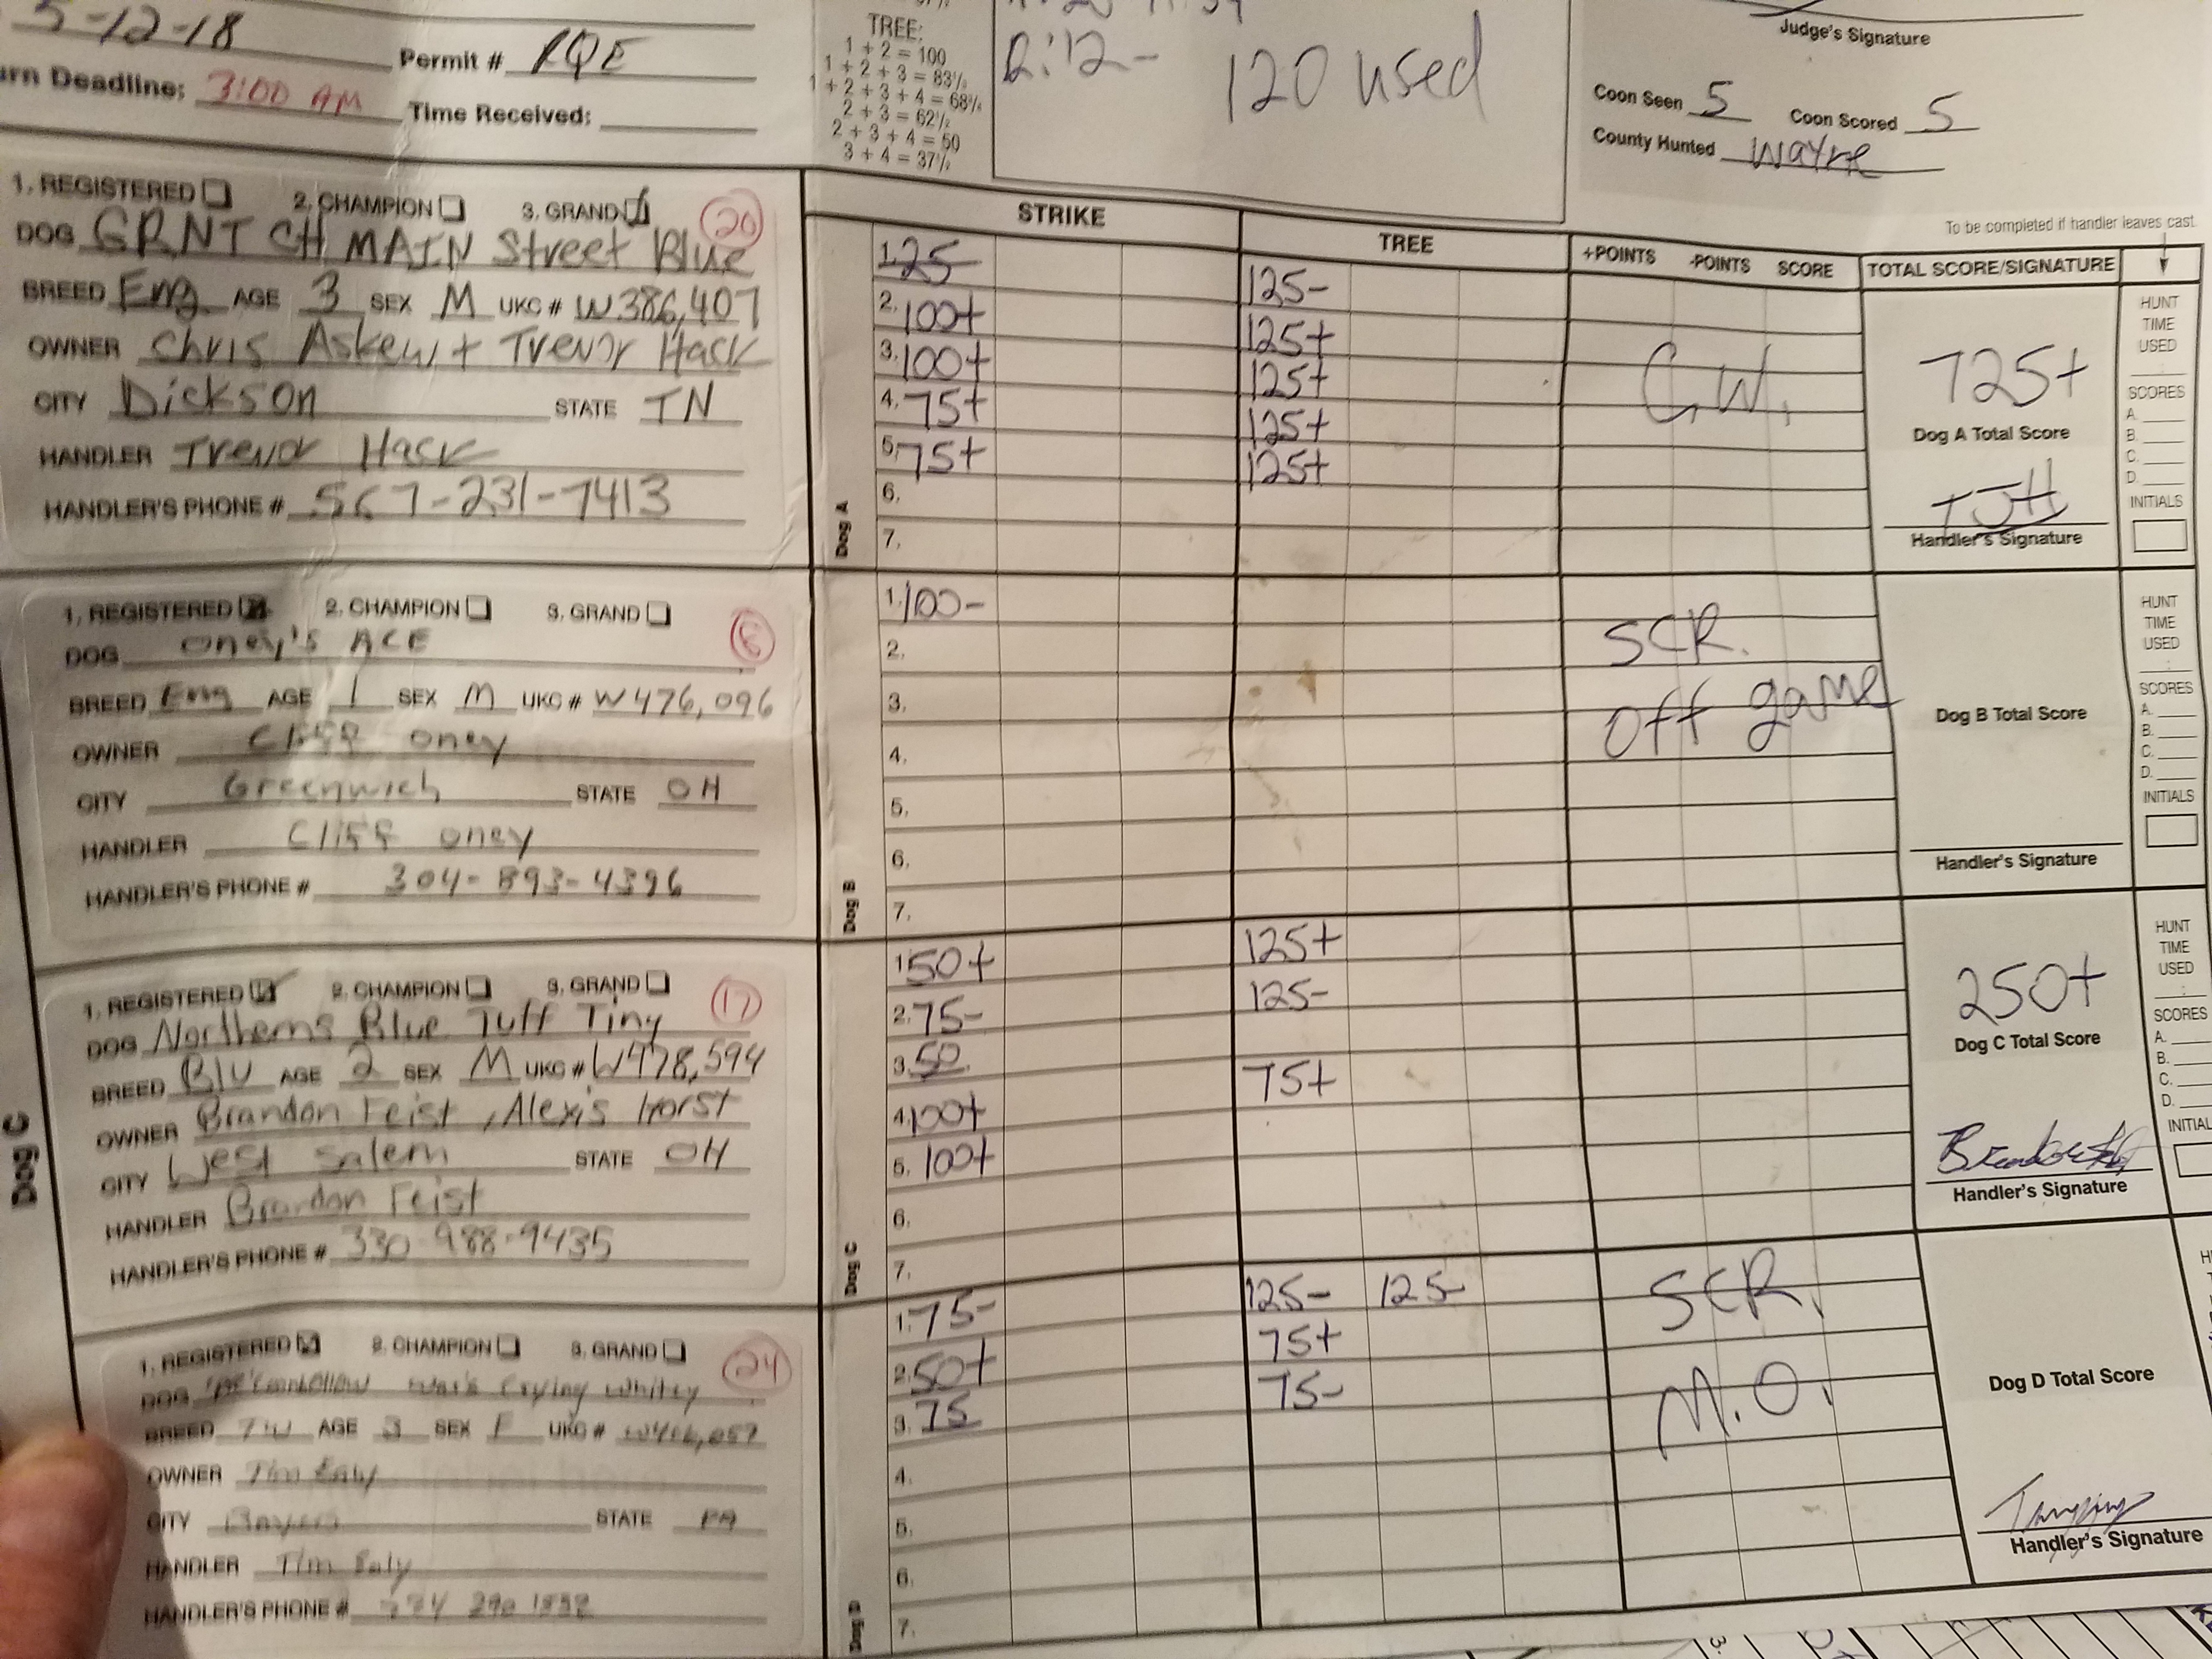 5-12-18
Permit # RQE
urn Deadline: 3:00 AM
Time Received:
TREE:
1 + 2 = 100
1 + 2 + 3 = 83 1/2
1 + 2 + 3 + 4 = 68 1/2
2 + 3 = 62 1/2
2 + 3 + 4 = 50
3 + 4 = 37 1/2
2:12- 120 used
Judge's Signature
Coon Seen 5 Coon Scored 5
County Hunted Wayne
To be completed if handler leaves cast
STRIKE TREE +POINTS -POINTS SCORE TOTAL SCORE/SIGNATURE
1. REGISTERED 2. CHAMPION 3. GRAND 20
DOG GRNT CH MAIN Street Blue
BREED Eng AGE 3 SEX M UKC # W386,407
OWNER Chris Askew + Trevor Hack
CITY Dickson STATE TN
HANDLER Trevor Hack
HANDLER'S PHONE # 567-231-7413
Dog A
1. 25 125-
2. 100+ 125+
3. 100+ 125+
4. 75+ 125+
5. 75+ 125+
6.
7.
C.W.
725+
Dog A Total Score
TJH
Handler's Signature
HUNT
TIME
USED
SCORES
A.
B.
C.
D.
INITIALS
1. REGISTERED 2. CHAMPION 3. GRAND 8
DOG Oney's ACE
BREED Eng AGE 1 SEX M UKC # W476,096
OWNER Cliff Oney
CITY Greenwich STATE OH
HANDLER Cliff Oney
HANDLER'S PHONE # 304-893-4396
Dog B
1. 100-
2.
3.
4.
5.
6.
7.
SCR.
Off game
Dog B Total Score
Handler's Signature
HUNT
TIME
USED
SCORES
A.
B.
C.
D.
INITIALS
Dog C
1. REGISTERED 2. CHAMPION 3. GRAND 17
DOG Northerns Blue Tuff Tiny
BREED Blu AGE 2 SEX M UKC # W478,594
OWNER Brandon Feist, Alexis Horst
CITY West Salem STATE OH
HANDLER Brandon Feist
HANDLER'S PHONE # 330-988-9435
Dog C
1. 50+ 125+
2. 75- 125-
3. 50 75+
4. 100+
5. 100+
6.
7.
250+
Dog C Total Score
Handler's Signature
HUNT
TIME
USED
SCORES
A.
B.
C.
D.
INITIAL
1. REGISTERED 2. CHAMPION 3. GRAND 24
DOG Crying Whitey
BREED TW AGE 3 SEX F UKC #
OWNER Tim
CITY STATE PA
HANDLER Tim
HANDLER'S PHONE #
Dog D
1. 75- 125- 125-
2. 50+ 75+
3. 75 75-
4.
5.
6.
7.
SCR.
M.O.
Dog D Total Score
Handler's Signature